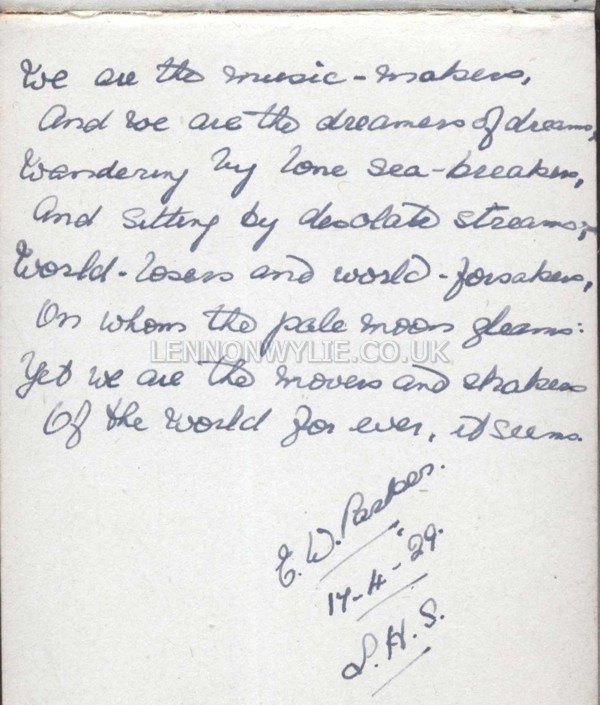 We are the music-makers,
And we are the dreamers of dreams,
Wandering by lone sea-breakers,
And sitting by desolate streams;
World-losers and world-forsakers,
On whom the pale moon gleams:
LENNONWYLIE.CO.UK
Yet we are the movers and shakers
Of the world for ever, it seems.
E. W. Parker.
17-4-29.
L.H.S.